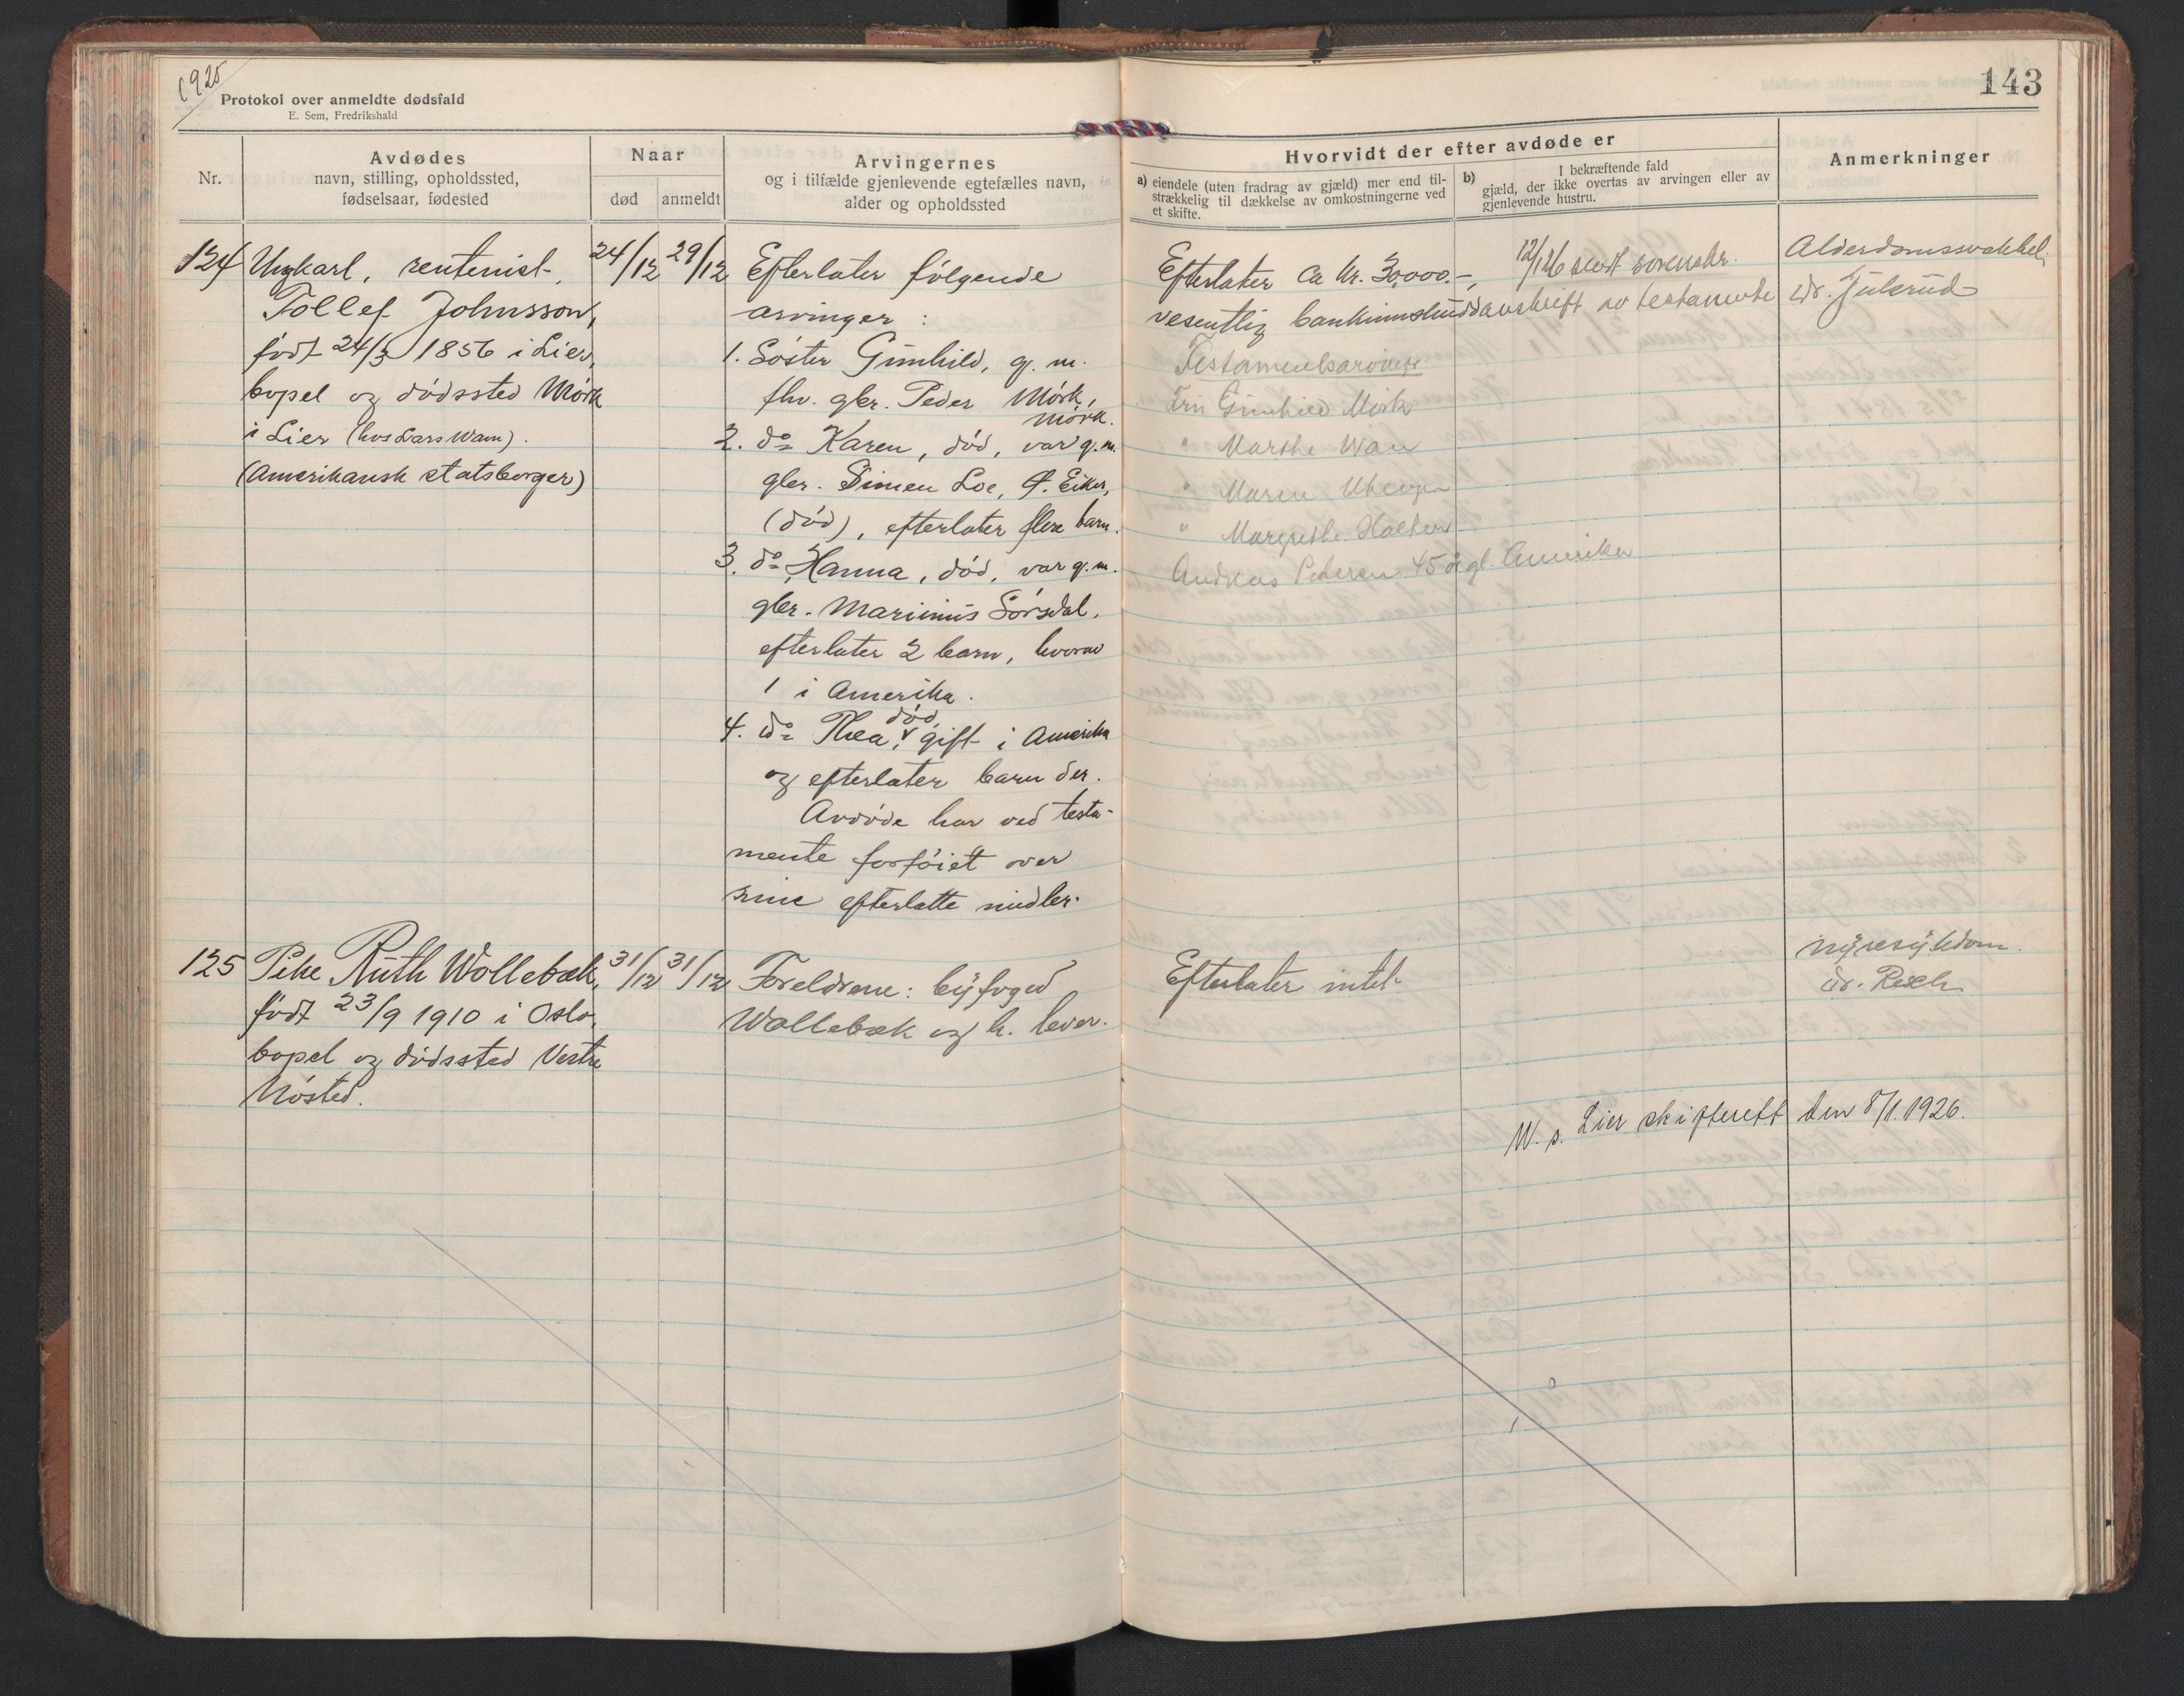 1925
Protokol over anmeldte dødsfald
E. Sem, Fredrikshald
143
Nr.
Avdødes
navn, stilling, opholdssted,
fødselsaar, fødested
Naar
død
anmeldt
Arvingernes
og i tilfælde gjenlevende egtefælles navn,
alder og opholdssted
Hvorvidt der efter avdøde er
a) eiendele (uten fradrag av gjæld) mer end til-
strækkelig til dækkelse av omkostningerne ved
et skifte.
b) I bekræftende fald
gjæld, der ikke overtas av arvingen eller av
gjenlevende hustru.
Anmerkninger
124
Ungkarl, rentenist
Tollef Johnsson,
født 24/3 1856 i Lier,
bopel og dødssted Mørk
i Lier (hos Lars Wam).
(Amerikansk statsborger)
24/12
29/12
Efterlater følgende
arvinger:
1. Søster Gunhild, g. m.
fhv. gbr. Peder Mørk,
Mørk.
2. do Karen, død, var g. m.
gbr. Simen Loe, Ø. Eiker,
(død), efterlater flere barn.
3. do Hanna, død, var g. m.
gbr. Marinius Sørsdal,
efterlater 2 barn, hvorav
1 i Amerika.
4. do Thea, død, gift i Amerika
og efterlater barn der.
Avdøde har ved testa-
mente forføiet over
sine efterlatte midler.
Efterlater ca kr. 30,000.-,
vesentlig bankinnskudd
12/1 26 sendt sorenskr.
avskrift av testamente
Testamentsarvinger
Fru Gunhild Mørk
" Marthe Wam
" Maren
" Margrethe Haltien
Andreas Pedersen 45 år gl. Amerika
Alderdomssvakhet
dr. Julsrud
125
Pike Ruth Wollebæk,
født 23/9 1910 i Oslo,
bopel og dødssted Vestre
Nøsted.
31/12
31/12
Foreldrene: byfoged
Wollebæk og h. lever.
Efterlater intet
Nyresykdom.
dr. Resch
W. s. Lier skifterett den 8/1. 1926.